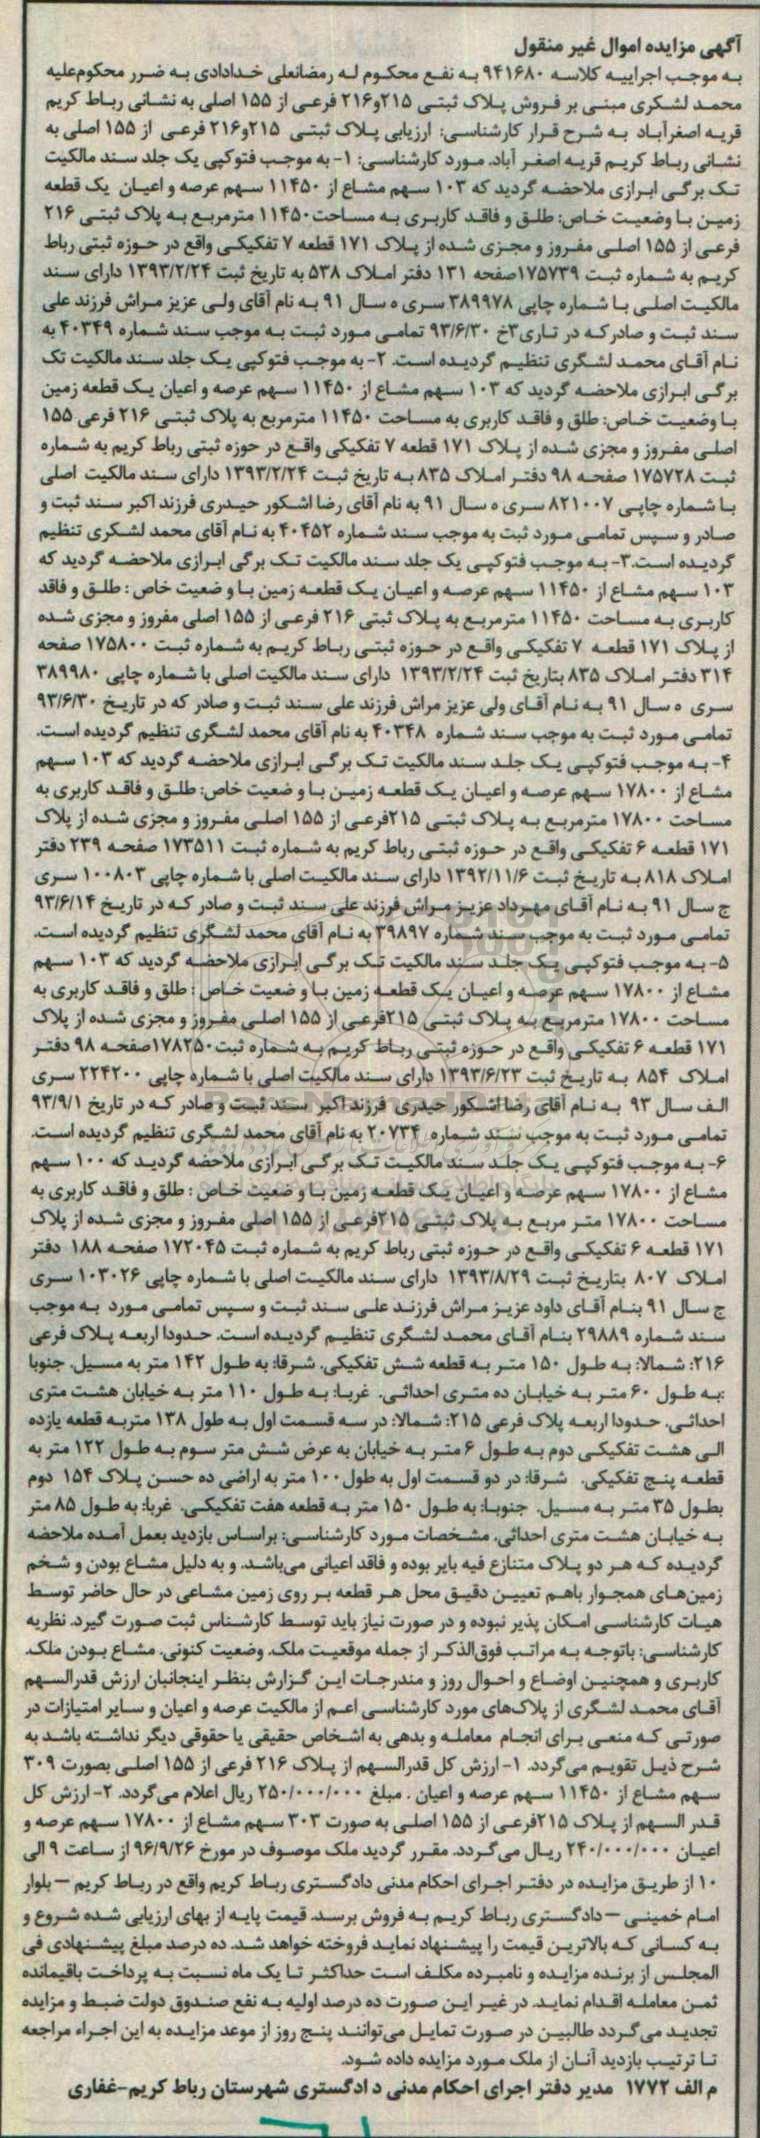 آگهی مزایده اموال غیر منقول
به موجب اجراییه کلاسه ۹۴۱۶۸۰ به نفع محکوم له رمضانعلی خدادادی به ضرر محکوم‌علیه
محمد لشکری مبنی بر فروش پلاک ثبتی ۲۱۵و۲۱۶ فرعی از ۱۵۵ اصلی به نشانی رباط کریم
قریه اصغرآباد به شرح قرار کارشناسی: ارزیابی پلاک ثبتی ۲۱۵و۲۱۶ فرعی از ۱۵۵ اصلی به
نشانی رباط کریم قریه اصغر آباد. مورد کارشناسی: ۱- به موجب فتوکپی یک جلد سند مالکیت
تک برگی ابرازی ملاحضه گردید که ۱۰۳ سهم مشاع از ۱۱۴۵۰ سهم عرصه و اعیان یک قطعه
زمین با وضعیت خاص: طلق و فاقد کاربری به مساحت۱۱۴۵۰ مترمربع به پلاک ثبتی ۲۱۶
فرعی از ۱۵۵ اصلی مفروز و مجزی شده از پلاک ۱۷۱ قطعه ۷ تفکیکی واقع در حوزه ثبتی رباط
کریم به شماره ثبت ۱۷۵۷۳۹صفحه ۱۳۱ دفتر املاک ۵۳۸ به تاریخ ثبت ۱۳۹۳/۲/۲۴ دارای سند
مالکیت اصلی با شماره چاپی ۳۸۹۹۷۸ سری ه سال ۹۱ به نام آقای ولی عزیز مراش فرزند علی
سند ثبت و صادرکه در تاری۳خ ۹۳/۶/۳۰ تمامی مورد ثبت به موجب سند شماره ۴۰۳۴۹ به
نام آقای محمد لشگری تنظیم گردیده است. ۲- به موجب فتوکپی یک جلد سند مالکیت تک
برگی ابرازی ملاحضه گردید که ۱۰۳ سهم مشاع از ۱۱۴۵۰ سهم عرصه و اعیان یک قطعه زمین
با وضعیت خاص: طلق و فاقد کاربری به مساحت ۱۱۴۵۰ مترمربع به پلاک ثبتی ۲۱۶ فرعی ۱۵۵
اصلی مفروز و مجزی شده از پلاک ۱۷۱ قطعه ۷ تفکیکی واقع در حوزه ثبتی رباط کریم به شماره
ثبت ۱۷۵۷۲۸ صفحه ۹۸ دفتر املاک ۸۳۵ به تاریخ ثبت ۱۳۹۳/۲/۲۴ دارای سند مالکیت اصلی
با شماره چاپی ۸۲۱۰۰۷ سری ه سال ۹۱ به نام آقای رضا اشکور حیدری فرزند اکبر سند ثبت و
صادر و سپس تمامی مورد ثبت به موجب سند شماره ۴۰۴۵۲ به نام آقای محمد لشکری تنظیم
گردیده است.۳- به موجب فتوکپی یک جلد سند مالکیت تک برگی ابرازی ملاحضه گردید که
۱۰۳ سهم مشاع از ۱۱۴۵۰ سهم عرصه و اعیان یک قطعه زمین با و ضعیت خاص : طلق و فاقد
کاربری به مساحت ۱۱۴۵۰ مترمربع به پلاک ثبتی ۲۱۶ فرعی از ۱۵۵ اصلی مفروز و مجزی شده
از پلاک ۱۷۱ قطعه ۷ تفکیکی واقع در حوزه ثبتی رباط کریم به شماره ثبت ۱۷۵۸۰۰ صفحه
۳۱۴ دفتر املاک ۸۳۵ بتاریخ ثبت ۱۳۹۳/۲/۲۴ دارای سند مالکیت اصلی با شماره چاپی ۳۸۹۹۸۰
سری ه سال ۹۱ به نام آقای ولی عزیز مراش فرزند علی سند ثبت و صادر که در تاریخ ۹۳/۶/۳۰
تمامی مورد ثبت به موجب سند شماره ۴۰۳۴۸ به نام آقای محمد لشگری تنظیم گردیده است.
۴- به موجب فتوکپی یک جلد سند مالکیت تک برگی ابرازی ملاحضه گردید که ۱۰۳ سهم
مشاع از ۱۷۸۰۰ سهم عرصه و اعیان یک قطعه زمین با و ضعیت خاص: طلق و فاقد کاربری به
مساحت ۱۷۸۰۰ مترمربع به پلاک ثبتی ۲۱۵فرعی از ۱۵۵ اصلی مفروز و مجزی شده از پلاک
۱۷۱ قطعه ۶ تفکیکی واقع در حوزه ثبتی رباط کریم به شماره ثبت ۱۷۳۵۱۱ صفحه ۲۳۹ دفتر
املاک ۸۱۸ به تاریخ ثبت ۱۳۹۲/۱۱/۶ دارای سند مالکیت اصلی با شماره چاپی ۱۰۰۸۰۳ سری
ج سال ۹۱ به نام آقای مهرداد عزیز مراش فرزند علی سند ثبت و صادر که در تاریخ ۹۳/۶/۱۴
تمامی مورد ثبت به موجب سند شماره ۳۹۸۹۷ به نام آقای محمد لشگری تنظیم گردیده است.
۵- به موجب فتوکپی یک جلد سند مالکیت تک برگی ابرازی ملاحضه گردید که ۱۰۳ سهم
مشاع از ۱۷۸۰۰ سهم عرصه و اعیان یک قطعه زمین با و ضعیت خاص : طلق و فاقد کاربری به
مساحت ۱۷۸۰۰ مترمربع به پلاک ثبتی ۲۱۵فرعی از ۱۵۵ اصلی مفروز و مجزی شده از پلاک
۱۷۱ قطعه ۶ تفکیکی واقع در حوزه ثبتی رباط کریم به شماره ثبت۱۷۸۲۵۰صفحه ۹۸ دفتر
املاک ۸۵۴ به تاریخ ثبت ۱۳۹۳/۶/۲۳ دارای سند مالکیت اصلی با شماره چاپی ۲۲۴۲۰۰ سری
الف سال ۹۳ به نام آقای رضا اشکور حیدری فرزند اکبر سند ثبت و صادر که در تاریخ ۹۳/۹/۱
تمامی مورد ثبت به موجب سند شماره ۲۰۷۳۴ به نام آقای محمد لشگری تنظیم گردیده است.
۶- به موجب فتوکپی یک جلد سند مالکیت تک برگی ابرازی ملاحضه گردید که ۱۰۰ سهم
مشاع از ۱۷۸۰۰ سهم عرصه و اعیان یک قطعه زمین با و ضعیت خاص : طلق و فاقد کاربری به
مساحت ۱۷۸۰۰ متر مربع به پلاک ثبتی ۲۱۵فرعی از ۱۵۵ اصلی مفروز و مجزی شده از پلاک
۱۷۱ قطعه ۶ تفکیکی واقع در حوزه ثبتی رباط کریم به شماره ثبت ۱۷۲۰۴۵ صفحه ۱۸۸ دفتر
املاک ۸۰۷ بتاریخ ثبت ۱۳۹۳/۸/۲۹ دارای سند مالکیت اصلی با شماره چاپی ۱۰۳۰۲۶ سری
ج سال ۹۱ بنام آقای داود عزیز مراش فرزند علی سند ثبت و سپس تمامی مورد به موجب
سند شماره ۲۹۸۸۹ بنام آقای محمد لشگری تنظیم گردیده است. حدودا اربعه پلاک فرعی
۲۱۶: شمالا: به طول ۱۵۰ متر به قطعه شش تفکیکی. شرقا: به طول ۱۴۲ متر به مسیل. جنوبا
:به طول ۶۰ متر به خیابان ده متری احداثی. غربا: به طول ۱۱۰ متر به خیابان هشت متری
احداثی. حدودا اربعه پلاک فرعی ۲۱۵: شمالا: در سه قسمت اول به طول ۱۳۸ متربه قطعه یازده
الی هشت تفکیکی دوم به طول ۶ متر به خیابان به عرض شش متر سوم به طول ۱۲۲ متر به
قطعه پنج تفکیکی. شرقا: در دو قسمت اول به طول۱۰۰ متر به اراضی ده حسن پلاک ۱۵۴ دوم
بطول ۳۵ متر به مسیل. جنوبا: به طول ۱۵۰ متر به قطعه هفت تفکیکی. غربا: به طول ۸۵ متر
به خیابان هشت متری احداثی. مشخصات مورد کارشناسی: براساس بازدید بعمل آمده ملاحضه
گردیده که هر دو پلاک متنازع فیه بایر بوده و فاقد اعیانی می‌باشد. و به دلیل مشاع بودن و شخم
زمین‌های همجوار باهم تعیین دقیق محل هر قطعه بر روی زمین مشاعی در حال حاضر توسط
هیات کارشناسی امکان پذیر نبوده و در صورت نیاز باید توسط کارشناس ثبت صورت گیرد. نظریه
کارشناسی: باتوجه به مراتب فوق‌الذکر از جمله موقعیت ملک. وضعیت کنونی. مشاع بودن ملک.
کاربری و همچنین اوضاع و احوال روز و مندرجات این گزارش بنظر اینجانبان ارزش قدرالسهم
آقای محمد لشگری از پلاک‌های مورد کارشناسی اعم از مالکیت عرصه و اعیان و سایر امتیازات در
صورتی که منعی برای انجام معامله و بدهی به اشخاص حقیقی یا حقوقی دیگر نداشته باشد به
شرح ذیل تقویم می‌گردد. ۱- ارزش کل قدرالسهم از پلاک ۲۱۶ فرعی از ۱۵۵ اصلی بصورت ۳۰۹
سهم مشاع از ۱۱۴۵۰ سهم عرصه و اعیان . مبلغ ۲۵۰/۰۰۰/۰۰۰ ریال اعلام می‌گردد. ۲- ارزش کل
قدر السهم از پلاک ۲۱۵فرعی از ۱۵۵ اصلی به صورت ۳۰۳ سهم مشاع از ۱۷۸۰۰ سهم عرصه و
اعیان ۲۴۰/۰۰۰/۰۰۰ ریال می‌گردد. مقرر گردید ملک موصوف در مورخ ۹۶/۹/۲۶ از ساعت ۹ الی
۱۰ از طریق مزایده در دفتر اجرای احکام مدنی دادگستری رباط کریم واقع در رباط کریم – بلوار
امام خمینی – دادگستری رباط کریم به فروش برسد. قیمت پایه از بهای ارزیابی شده شروع و
به کسانی که بالاترین قیمت را پیشنهاد نماید فروخته خواهد شد. ده درصد مبلغ پیشنهادی فی
المجلس از برنده مزایده و نامبرده مکلف است حداکثر تا یک ماه نسبت به پرداخت باقیمانده
ثمن معامله اقدام نماید. در غیر این صورت ده درصد اولیه به نفع صندوق دولت ضبط و مزایده
تجدید می‌گردد طالبین در صورت تمایل می‌توانند پنج روز از موعد مزایده به این اجراء مراجعه
تا ترتیب بازدید آنان از ملک مورد مزایده داده شود.
م الف ۱۷۷۲ مدیر دفتر اجرای احکام مدنی د ادگستری شهرستان رباط کریم-غفاری